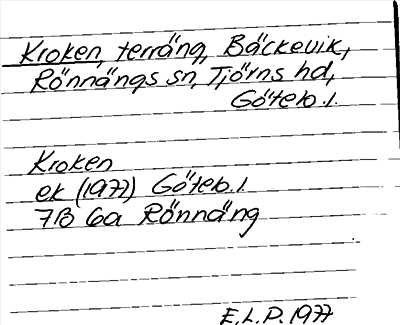 Kroken, terräng, Bäckevik,
Rönnängs sn, Tjörns hd,
Göteb. l.
Kroken
ek (1977) Göteb. l.
7B 6a Rönnäng
E.L.P. 1977